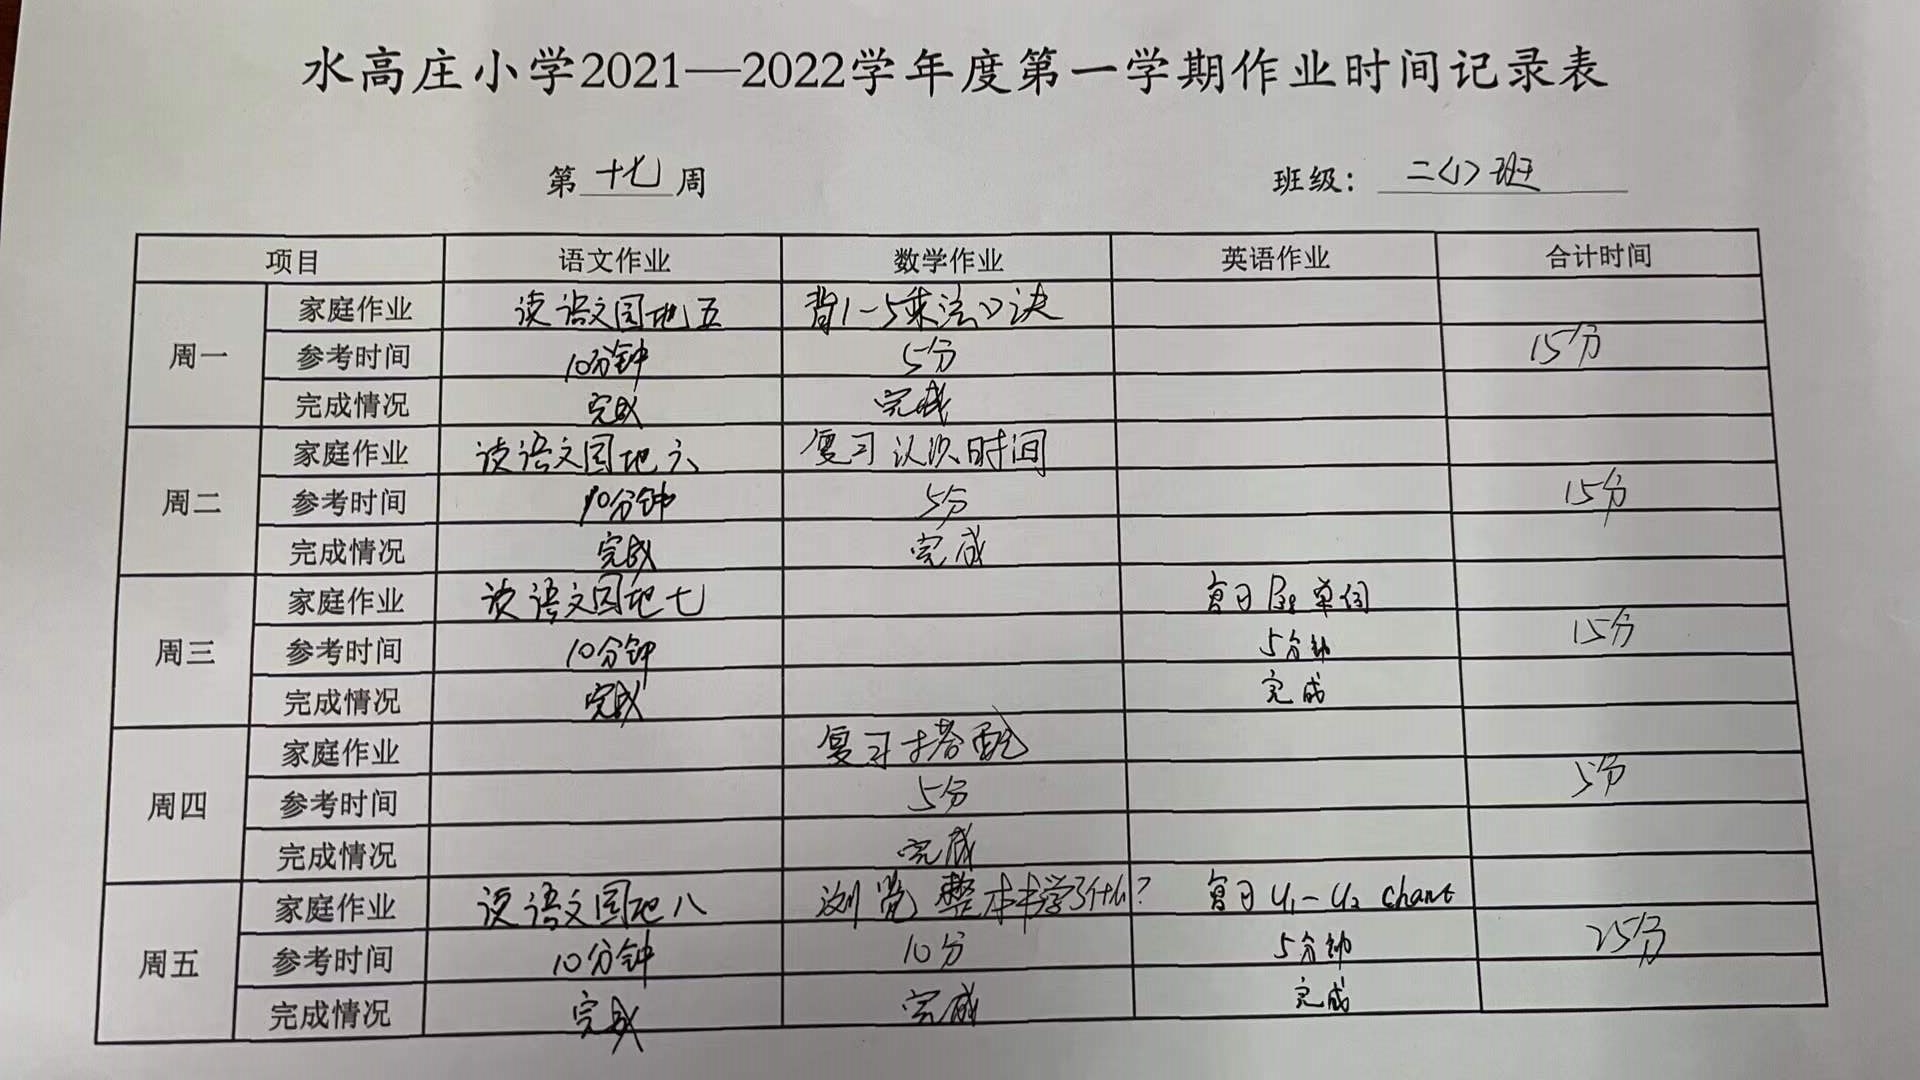 水高庄小学2021—2022学年度第一学期作业时间记录表
第 十七 周 班级： 二(1)班
项目 语文作业 数学作业 英语作业 合计时间
周一
家庭作业 读语文园地五 背1-5乘法口诀
参考时间 10分钟 5分 15分
完成情况 完成 完成
周二
家庭作业 读语文园地六 复习认识时间
参考时间 10分钟 5分 15分
完成情况 完成 完成
周三
家庭作业 读语文园地七 复习 单词
参考时间 10分钟 5分钟 15分
完成情况 完成 完成
周四
家庭作业 复习搭配
参考时间 5分 5分
完成情况 完成
周五
家庭作业 读语文园地八 浏览整本书学了什么? 复习 U1-U2 chant
参考时间 10分钟 10分 5分钟 25分
完成情况 完成 完成 完成